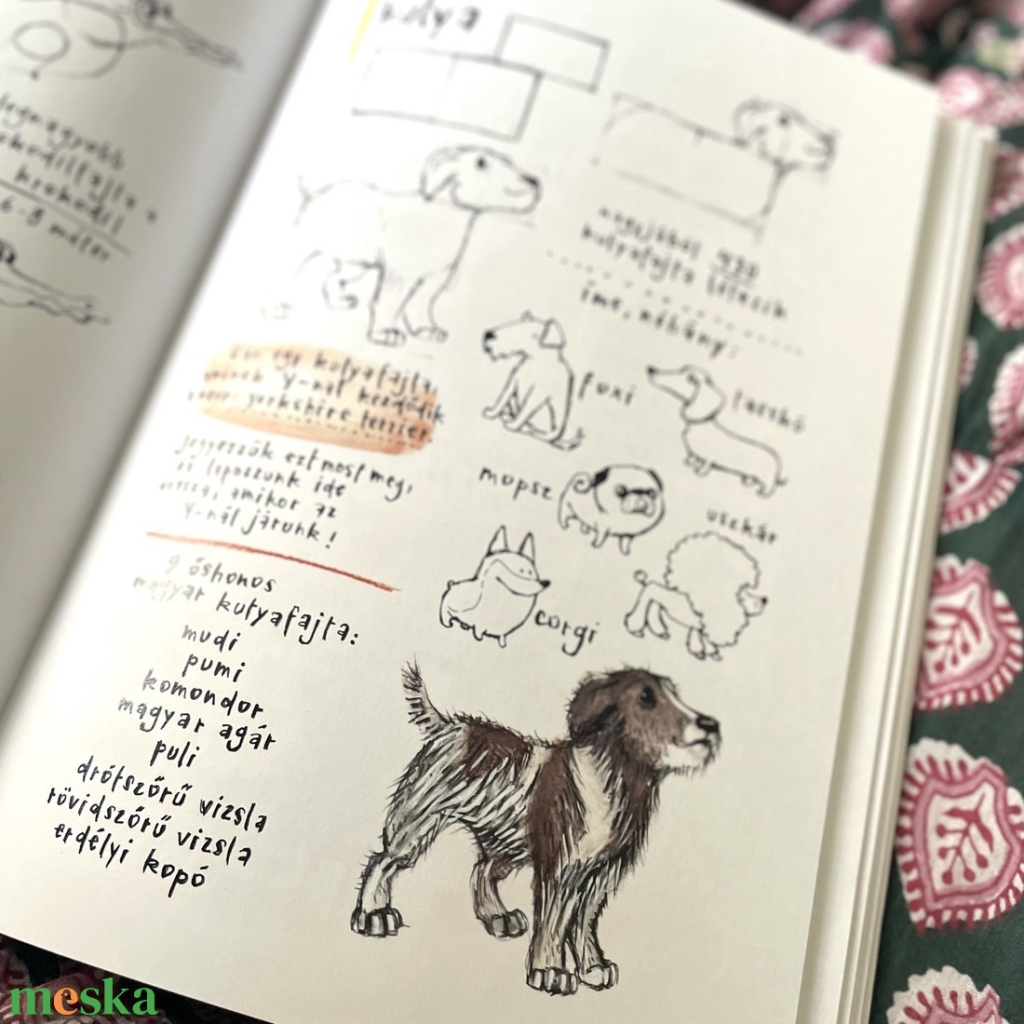 kutya
legnagyobb
krokodilfajta a
krokodil
6-8 méter
nagyjából 420
kutyafajta létezik
íme, néhány:
foxi
tacskó
mopsz
uszkár
corgi
Van egy kutyafajta,
aminek Y-nál kezdődik
yorkshire terrier
jegyezzük ezt most meg,
és lapozzunk ide
vissza, amikor az
Y-nál járunk!
9 őshonos
magyar kutyafajta:
mudi
pumi
komondor
magyar agár
puli
drótszőrű vizsla
rövidszőrű vizsla
erdélyi kopó
meska